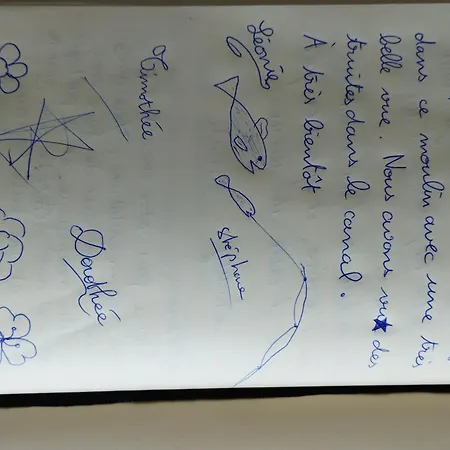 dans ce moulin avec une très
belle vue. Nous avons vu des
truites dans le canal.
À très bientôt
Léonie
stéphane
Timothée
Dorothée